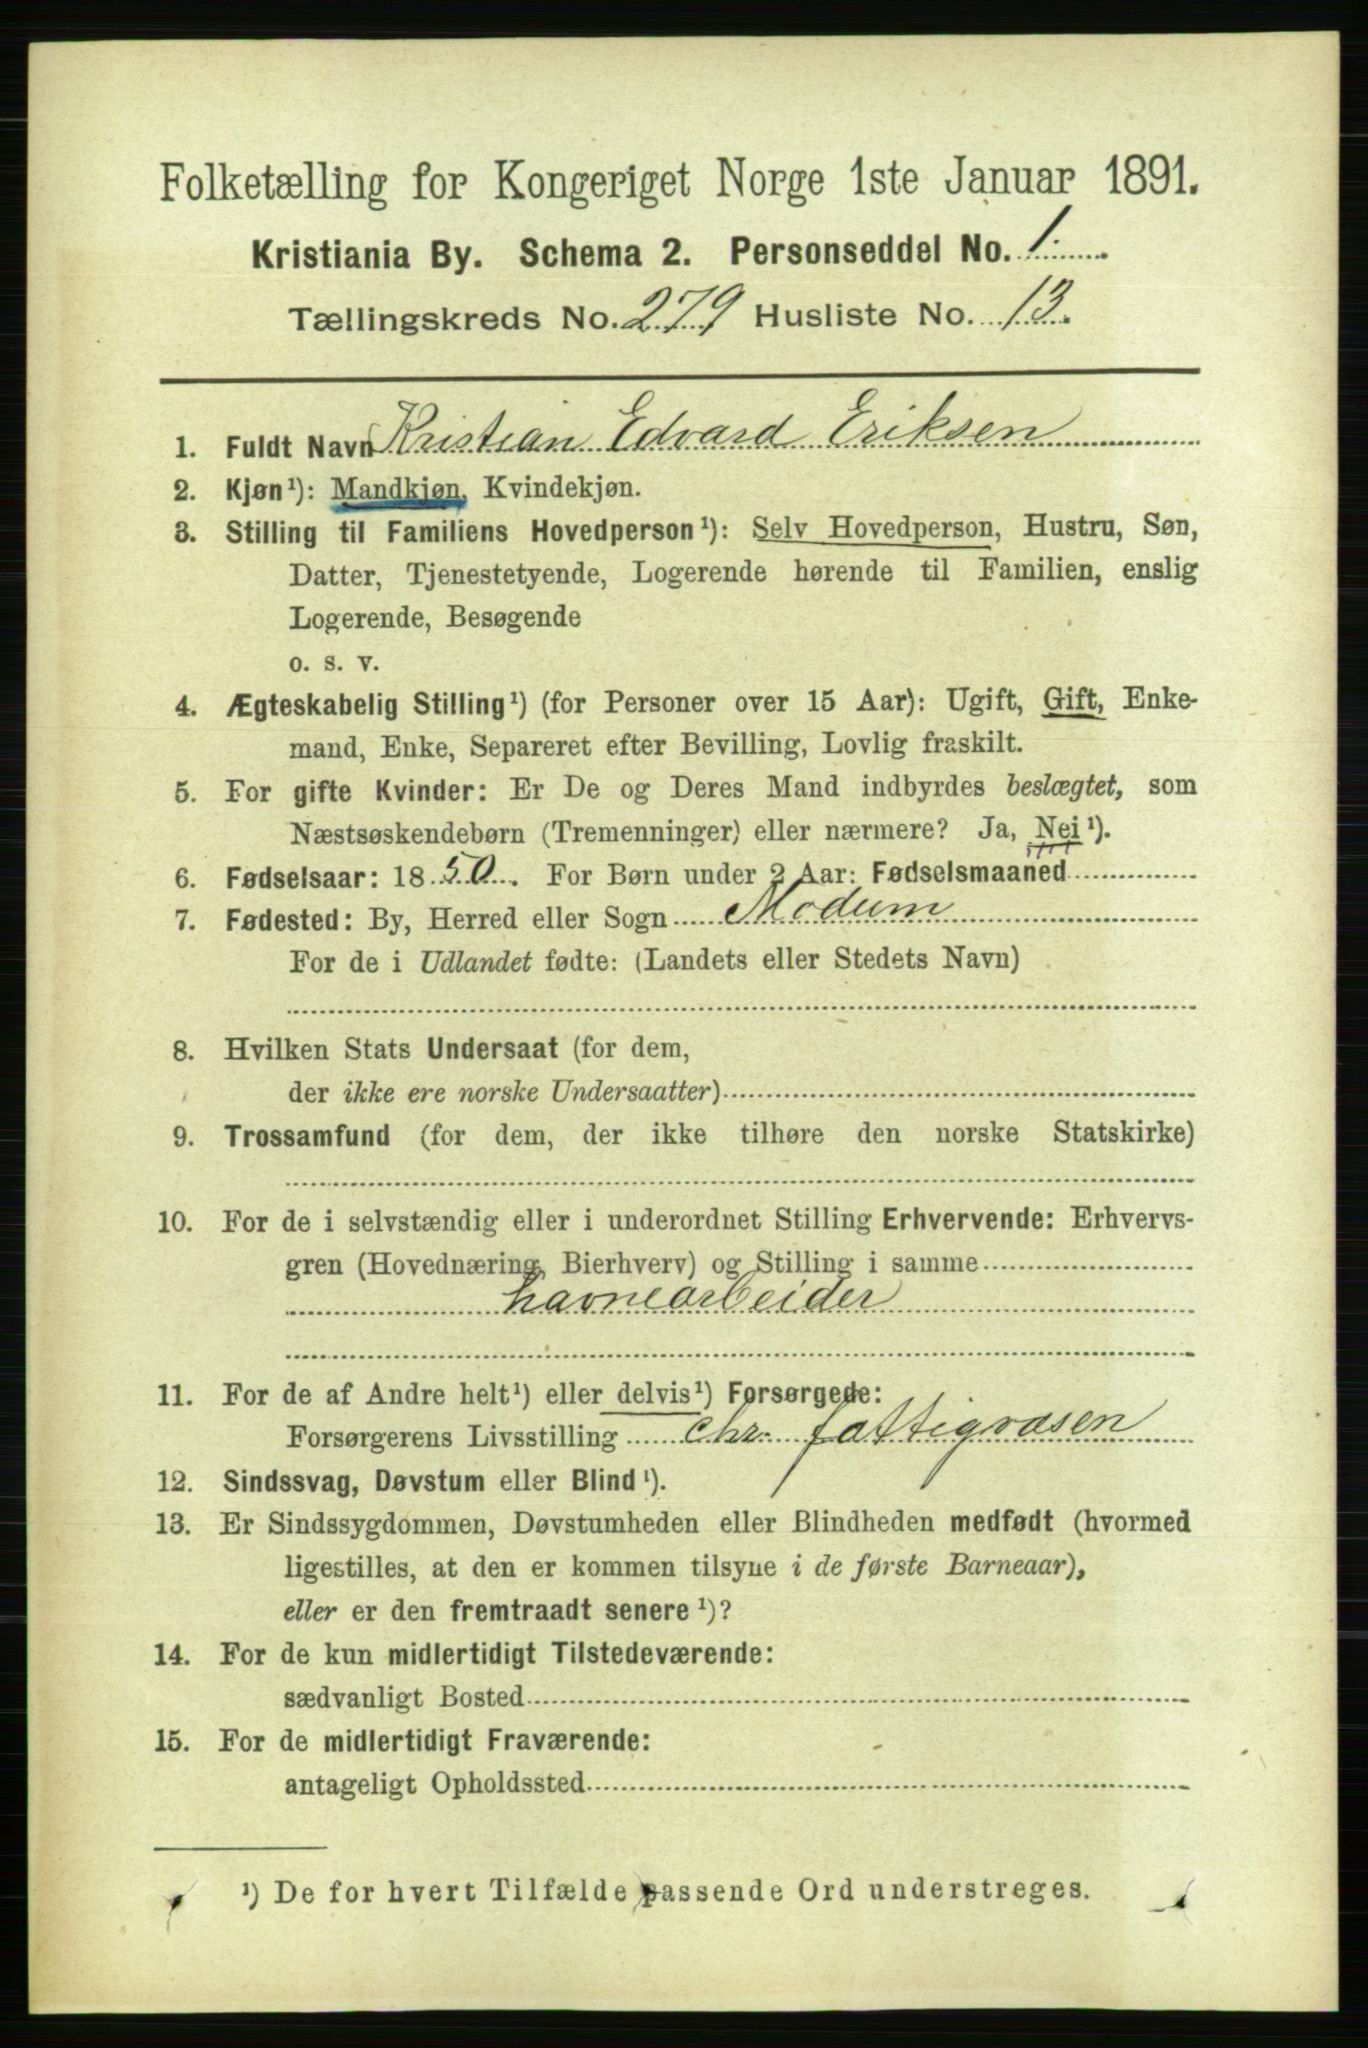 Folketælling for Kongeriget Norge 1ste Januar 1891.
Kristiania By. Schema 2. Personseddel No. 1.
Tællingskreds No. 279 Husliste No. 13.
1. Fuldt Navn Kristian Edvard Eriksen
2. Kjøn¹): Mandkjøn, Kvindekjøn.
3. Stilling til Familiens Hovedperson¹): Selv Hovedperson, Hustru, Søn,
Datter, Tjenestetyende, Logerende hørende til Familien, enslig
Logerende, Besøgende
o. s. v.
4. Ægteskabelig Stilling¹) (for Personer over 15 Aar): Ugift, Gift, Enke-
mand, Enke, Separeret efter Bevilling, Lovlig fraskilt.
5. For gifte Kvinder: Er De og Deres Mand indbyrdes beslægtet, som
Næstsøskendebørn (Tremenninger) eller nærmere? Ja, Nei¹).
6. Fødselsaar: 1850. For Børn under 2 Aar: Fødselsmaaned
7. Fødested: By, Herred eller Sogn Modum
For de i Udlandet fødte: (Landets eller Stedets Navn)
8. Hvilken Stats Undersaat (for dem,
der ikke ere norske Undersaatter)
9. Trossamfund (for dem, der ikke tilhøre den norske Statskirke)
10. For de i selvstændig eller i underordnet Stilling Erhvervende: Erhvervs-
gren (Hovednæring, Bierhverv) og Stilling i samme
havnearbeider
11. For de af Andre helt¹) eller delvis¹) Forsørgede:
Forsørgerens Livsstilling chr. fattigvæsen
12. Sindssvag, Døvstum eller Blind¹).
13. Er Sindssygdommen, Døvstumheden eller Blindheden medfødt (hvormed
ligestilles, at den er kommen tilsyne i de første Barneaar),
eller er den fremtraadt senere¹)?
14. For de kun midlertidigt Tilstedeværende:
sædvanligt Bosted
15. For de midlertidigt Fraværende:
antageligt Opholdssted
¹) De for hvert Tilfælde passende Ord understreges.